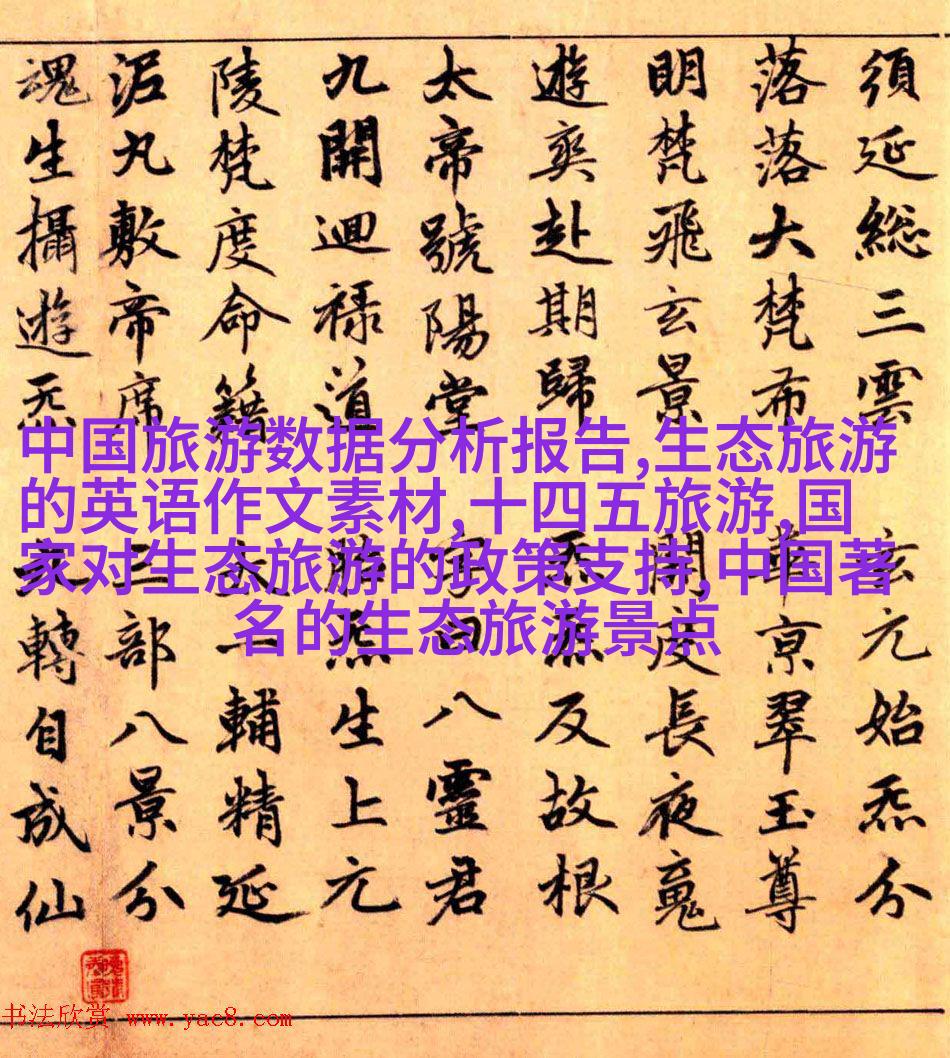 須延総三雲 玄元始炁分
落落大梵布 華京翠玉尊
明梵飛玄景 開度長夜䰟
遊爽赴期歸 炁流反故根
太帝號陽堂 字曰八靈君
九開迴祿道 炁生上元
陵梵度命籍 太一輔精延
泥丸敷帝席 三部八景分
魂生攝遊炁 轉自成仙
中国旅游数据分析报告,生态旅游
的英语作文素材,十四五旅游,国
家对生态旅游的政策支持,中国著
名的生态旅游景点
书法欣赏 www.yac8.com